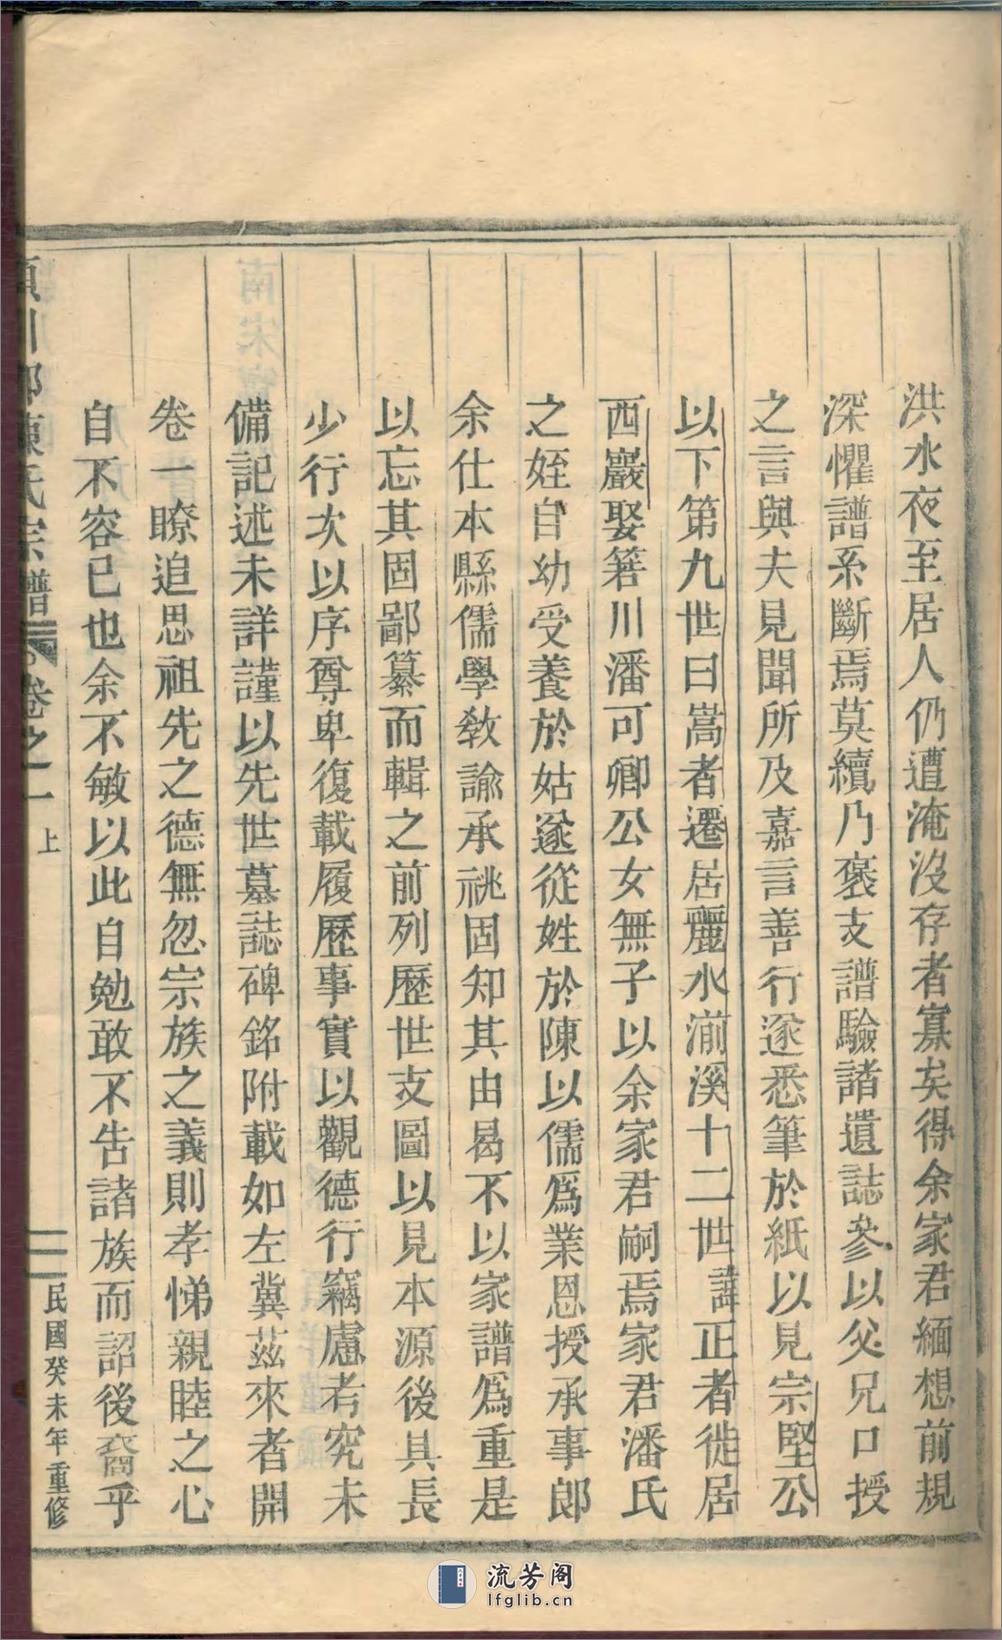 洪水夜至居人仍遭淹沒存者寡矣得余家君緬想前規
深懼譜系斷焉莫續乃褒支譜驗諸遺誌參以父兄口授
之言與夫見聞所及嘉言善行遂悉筆於紙以見宗堅公
以下第九世曰嵩者遷居麗水湔溪十二世諱正者徙居
西巖娶箬川潘可卿公女無子以余家君嗣焉家君潘氏
之姪自幼受養於姑遂從姓於陳以儒爲業恩授承事郎
余仕本縣儒學教諭承祧固知其由曷不以家譜爲重是
以忘其固鄙纂而輯之前列歷世支圖以見本源後具長
少行次以序尊卑復載履歷事實以觀德行竊慮考究未
備記述未詳謹以先世墓誌碑銘附載如左冀茲來者開
卷一瞭追思祖先之德無忽宗族之義則孝悌親睦之心
自不容已也余不敏以此自勉敢不告諸族而詔後裔乎
川郡陳氏宗譜 卷之一 上 民國癸未年重修
流芳阁
lfglib.cn